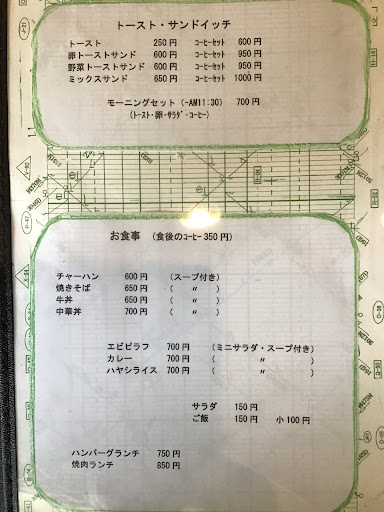 トースト・サンドイッチ
トースト 250円 ｺｰﾋｰｾｯﾄ 600円
卵トーストサンド 600円 ｺｰﾋｰｾｯﾄ 950
野菜トーストサンド 600円 ｺｰﾋｰｾｯﾄ 950
ミックスサンド 650円 ｺｰﾋｰｾｯﾄ 1000円
モーニングセット (-AM11:30) 700円
(ﾄｰｽﾄ・卵・ｻﾗﾀﾞ・ｺｰﾋｰ)
お食事 (食後のｺｰﾋｰ350円)
チャーハン 600円 (スープ付き)
焼きそば 650円 ( 〃 )
牛丼 650円 ( 〃 )
中華丼 700円 ( 〃 )
エビピラフ 700円 (ミニサラダ・スープ付き)
カレー 700円 ( 〃 )
ハヤシライス 700円 ( 〃 )
サラダ 150円
ご飯 150円 小100円
ハンバーグランチ 750円
焼肉ランチ 850円